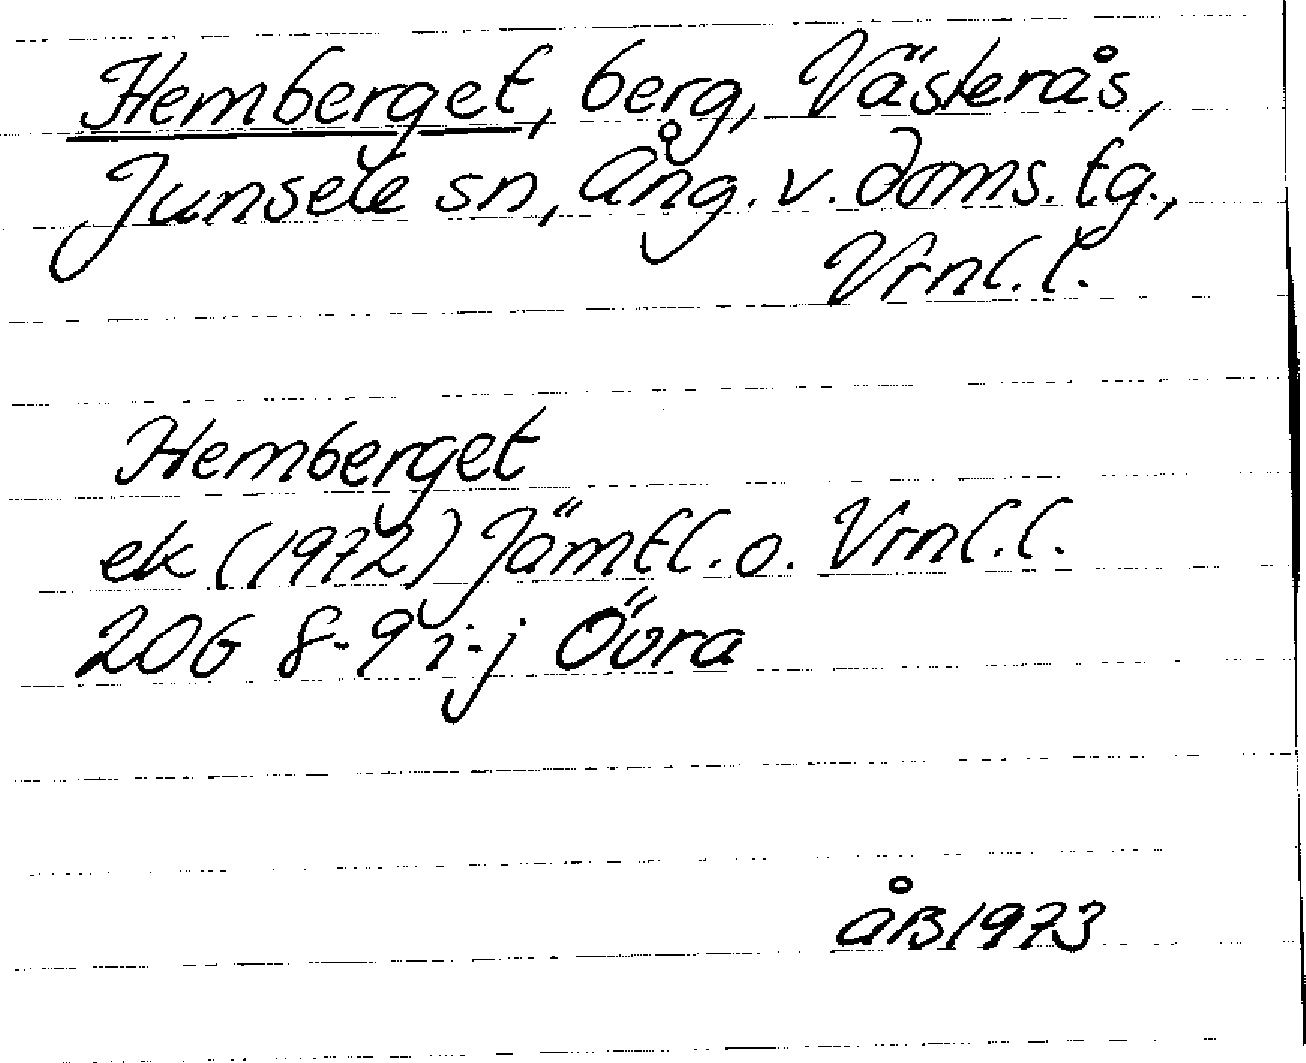 Hemberget, berg, Västerås,
Junsele sn, Ång. v. doms. tg.,
Vrnl.l.
Hemberget
ek (1972) Jämtl. o. Vrnl.l.
20G 8-9 i-j Övra
ÅB 1973